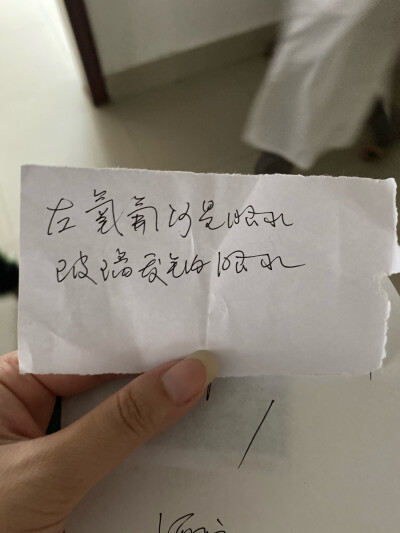 左氧氟沙星眼水
玻璃酸钠眼水